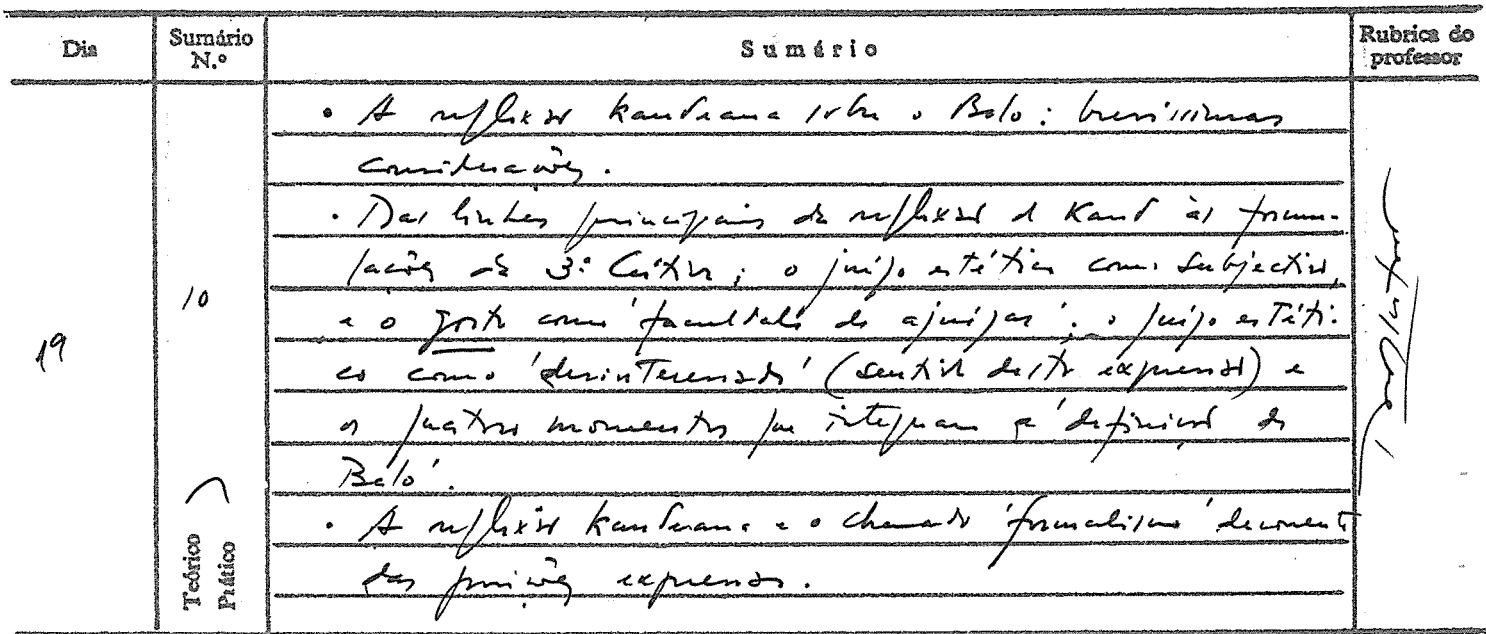 Dia
Sumário N.º
Sumário
Rubrica do professor
19
10
Teórico
Prático
• A reflexão kanteana sobre o Belo: brevíssimas
considerações.
• Das linhas principais da reflexão de Kant às formu-
lações da 3ª Crítica; o juízo estético como subjectivo,
e o gosto como 'faculdade de ajuizar'; o juízo estéti-
co como 'desinteressado' (sentido desta expressão) e
os quatro momentos que integram a 'definição do
Belo'.
• A reflexão kanteana e o chamado 'formalismo' decorrente
das posições expressas.